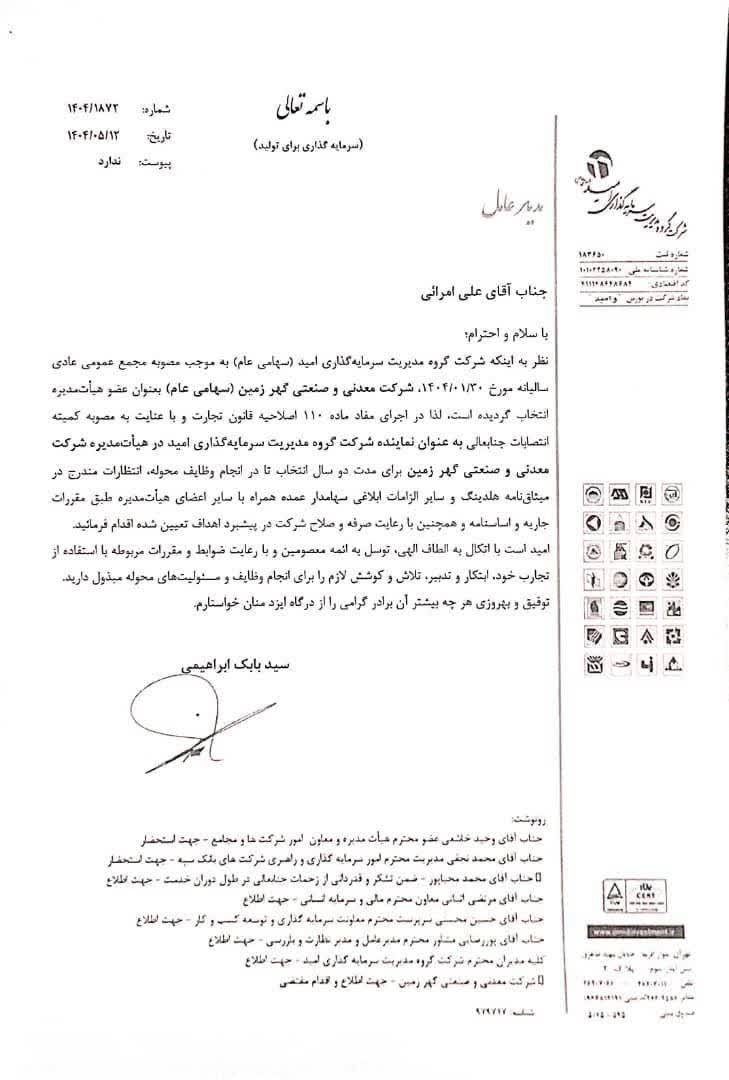 باسمه تعالی
(سرمایه گذاری برای تولید)
شماره: ۱۴۰۴/۱۸۷۲
تاریخ: ۱۴۰۴/۰۵/۱۲
پیوست: ندارد
شرکت گروه مدیریت سرمایه گذاری امید
شماره ثبت ۱۸۳۶۵۰
شماره شناسه ملی
کد اقتصادی:
نماد شرکت در بورس "وامید"
مدیر عامل
جناب آقای علی امرائی
با سلام و احترام؛
نظر به اینکه شرکت گروه مدیریت سرمایه‌گذاری امید (سهامی عام) به موجب مصوبه مجمع عمومی عادی
سالیانه مورخ ۱۴۰۴/۰۱/۳۰، شرکت معدنی و صنعتی گهر زمین (سهامی عام) بعنوان عضو هیأت‌مدیره
انتخاب گردیده است، لذا در اجرای مفاد ماده ۱۱۰ اصلاحیه قانون تجارت و با عنایت به مصوبه کمیته
انتصابات جنابعالی به عنوان نماینده شرکت گروه مدیریت سرمایه‌گذاری امید در هیأت‌مدیره شرکت
معدنی و صنعتی گهر زمین برای مدت دو سال انتخاب تا در انجام وظایف محوله، انتظارات مندرج در
میثاق‌نامه هلدینگ و سایر الزامات ابلاغی سهامدار عمده همراه با سایر اعضای هیأت‌مدیره طبق مقررات
جاریه و اساسنامه و همچنین با رعایت صرفه و صلاح شرکت در پیشبرد اهداف تعیین شده اقدام فرمائید.
امید است با اتکال به الطاف الهی، توسل به ائمه معصومین و با رعایت ضوابط و مقررات مربوطه با استفاده از
تجارب خود، ابتکار و تدبیر، تلاش و کوشش لازم را برای انجام وظایف و مسئولیت‌های محوله مبذول دارید.
توفیق و بهروزی هر چه بیشتر آن برادر گرامی را از درگاه ایزد منان خواستارم.
سید بابک ابراهیمی
رونوشت:
جناب آقای وحید خاشعی عضو محترم هیأت مدیره و معاون امور شرکت ها و مجامع - جهت استحضار
جناب آقای محمد نجفی مدیریت محترم امور سرمایه گذاری و راهبری شرکت های بانک سپه - جهت استحضار
جناب آقای محمد محیاپور - ضمن تشکر و قدردانی از زحمات جنابعالی در طول دوران خدمت - جهت اطلاع
جناب آقای مرتضی معاون محترم مالی و سرمایه انسانی - جهت اطلاع
جناب آقای حسین محسنی سرپرست محترم معاونت سرمایه گذاری و توسعه کسب و کار - جهت اطلاع
جناب آقای پوررضایی مشاور محترم مدیرعامل و مدیر نظارت و بازرسی - جهت اطلاع
کلیه مدیران محترم شرکت گروه مدیریت سرمایه گذاری امید - جهت اطلاع
شرکت معدنی و صنعتی گهر زمین - جهت اطلاع و اقدام مقتضی
شناسه: ۹۷۹۷۱۷
CERT
www.omidinvestment.ir